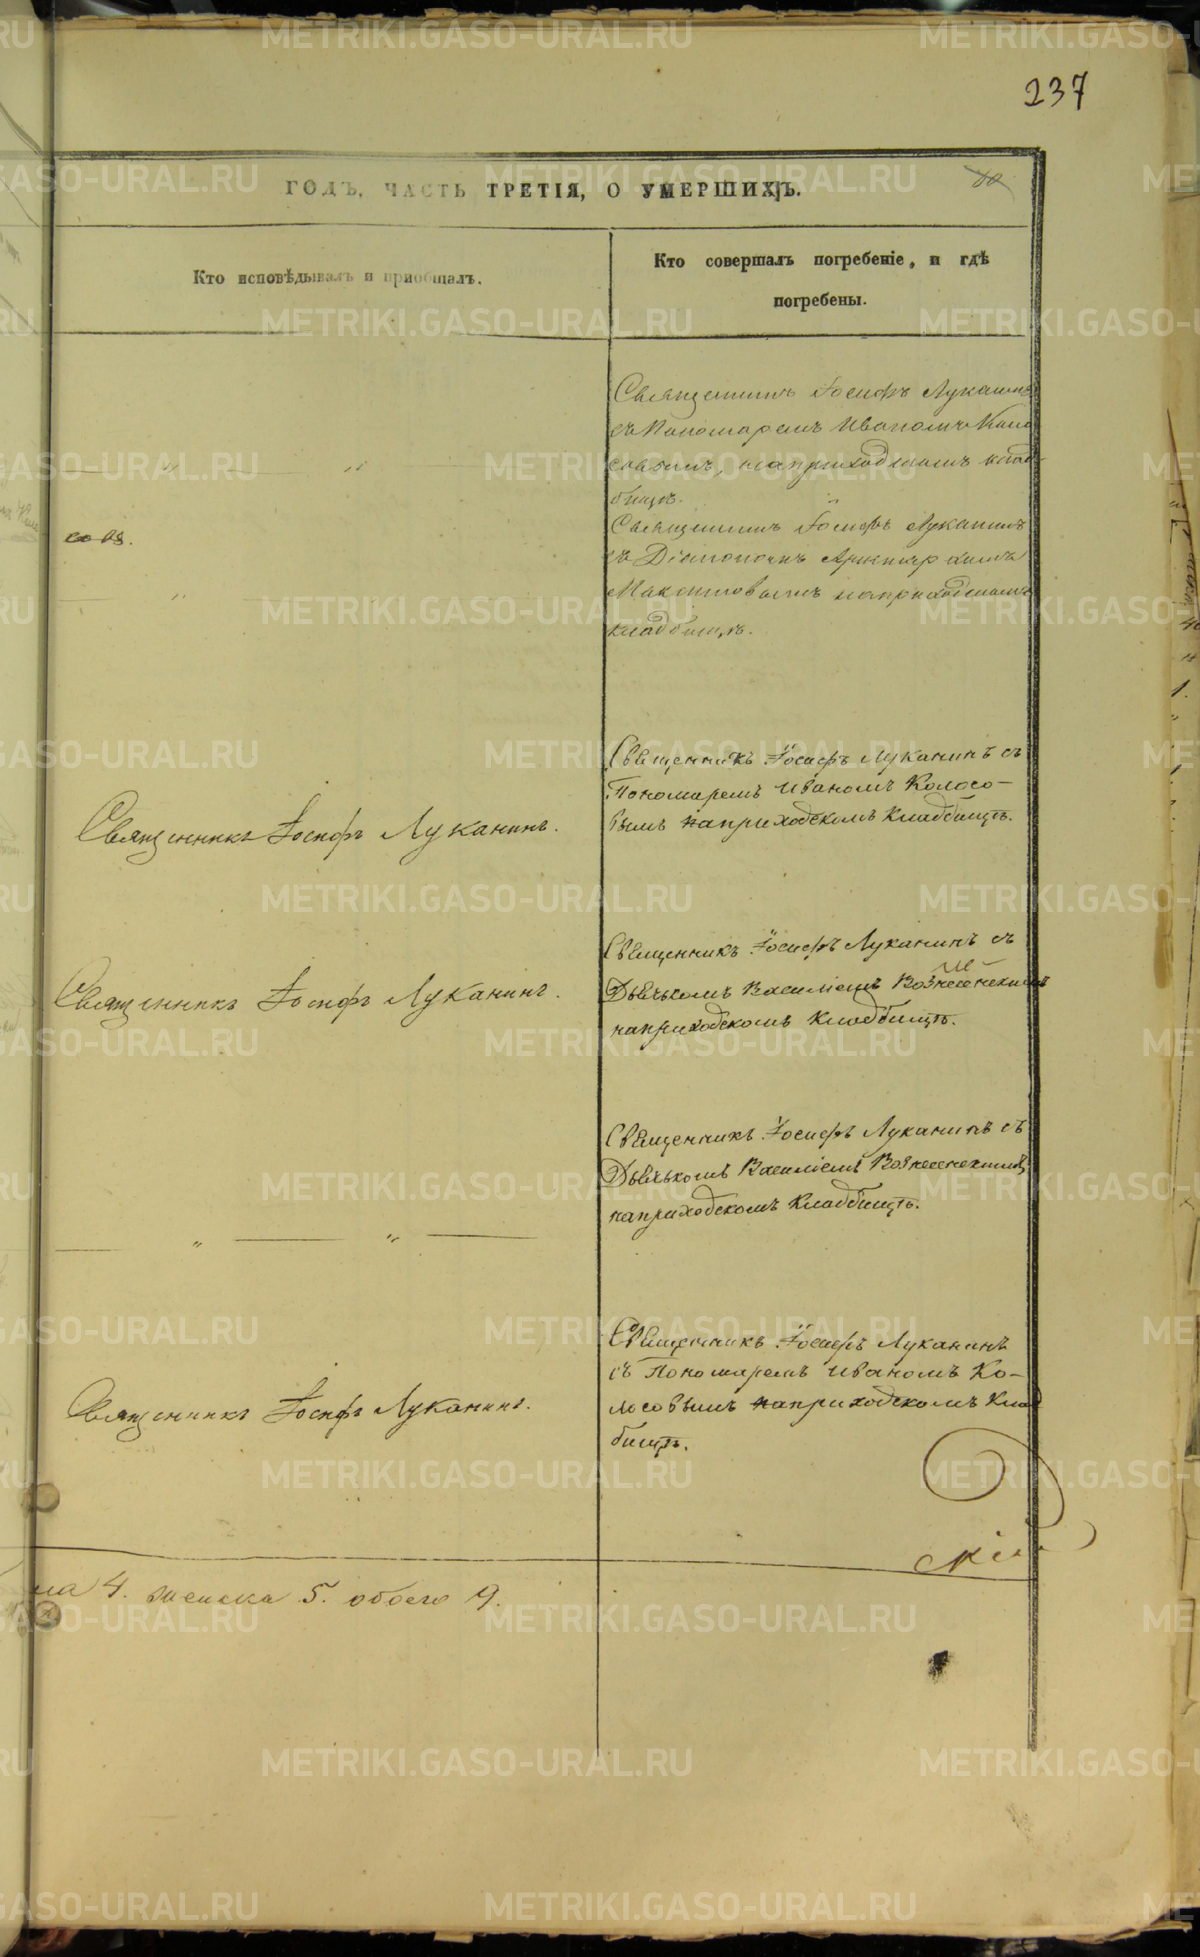 237
ГОДЪ, ЧАСТЬ ТРЕТІЯ, О УМЕРШИХЪ.
Кто исповѣдывалъ и пріобщалъ.
Кто совершалъ погребеніе, и гдѣ
погребены.
Священникъ Іосифъ Луканинъ
съ Пономаремъ Иваномъ Коло
совымъ, наприходскомъ клад-
бищѣ.
Священникъ Іосифъ Луканинъ
съ Діакономъ
наприходскомъ
кладбищѣ.
Священникъ Іосифъ Луканинъ съ
Пономаремъ Иваномъ Колосо-
вымъ наприходскомъ Кладбищѣ.
Священникъ Іосифъ Луканинъ.
Священникъ Іосифъ Луканинъ съ
Дьячькомъ Василіемъ Вознесенскимъ
наприходскомъ Кладбищѣ.
Священникъ Іосифъ Луканинъ.
Священникъ Іосифъ Луканинъ съ
Дьячькомъ Василіемъ Вознесенскимъ
наприходскомъ Кладбищѣ.
Священникъ Іосифъ Луканинъ
съ Пономаремъ Иваномъ Ко-
лосовымъ наприходскомъ Клад
бищѣ.
Священникъ Іосифъ Луканинъ.
скій
на 4. женска 5. обоего 9.
METRIKI.GASO-URAL.RU